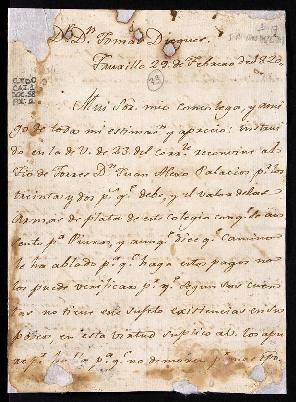 Dr Dn Tomas Dieguez.
Truxillo 29 de Febrero de 1820.
23
Mui Sor. mio comcolega, y ami
go de toda mi estimacn. y aprecio: instrui
do en la de V. de 23 del corrte. reconvine al
Tio de Torres Dn Juan Alexo Palacios pr los
treinta y dos ps. qe. debe, y el valor de las
Armas de plata de este Colegio con qe. se au
sentó pa Piura, y aunqe. dice qe. Camino
le ha ablado pa qe. haga estos pagos no
los puede verificar pr qe. segun sus cuen
tas no tiene este sugeto existencias en su
poder, en esta virtud suplico a V. los apu
pa qe. no demoren